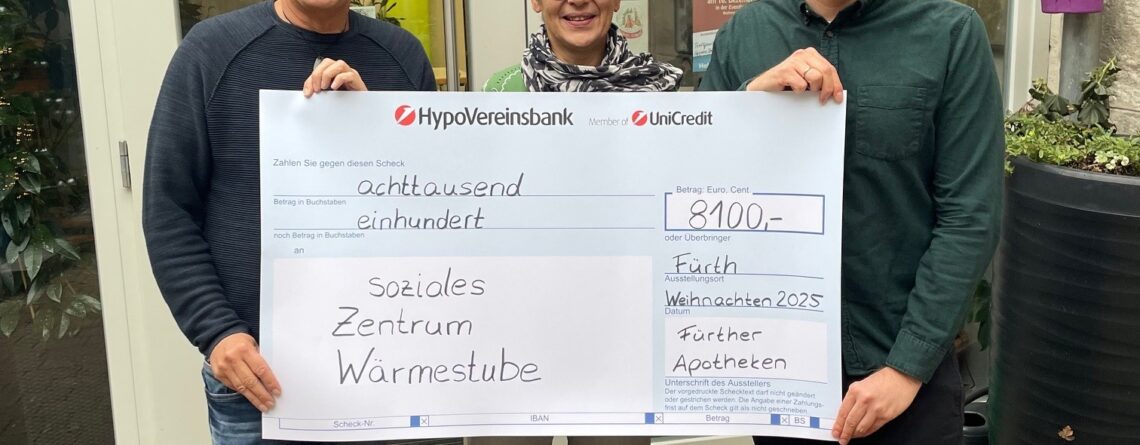 HypoVereinsbank Member of UniCredit
Zahlen Sie gegen diesen Scheck
achttausend
Betrag in Buchstaben
einhundert
noch Betrag in Buchstaben
an
Soziales
Zentrum
Wärmestube
Betrag: Euro, Cent
8100,-
oder Überbringer
Fürth
Ausstellungsort
Weihnachten 2025
Datum
Fürther
Apotheken
Unterschrift des Ausstellers
Der vorgedruckte Schecktext darf nicht geändert
oder gestrichen werden. Die Angabe einer Zahlungs-
frist auf dem Scheck gilt als nicht geschrieben
Scheck-Nr. IBAN Betrag BS